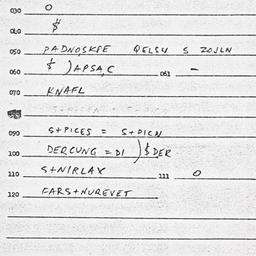 030 O
040 $
050 PADNOSKPE QELSU S ZOJLN
060 $ )APSA,C 061 –
070 KNAFL
090 S+PICES = S+PICN
100 DERCUNG = DI )$DER
110 S+NIRLAX 111 O
120 FARS+NUREVET